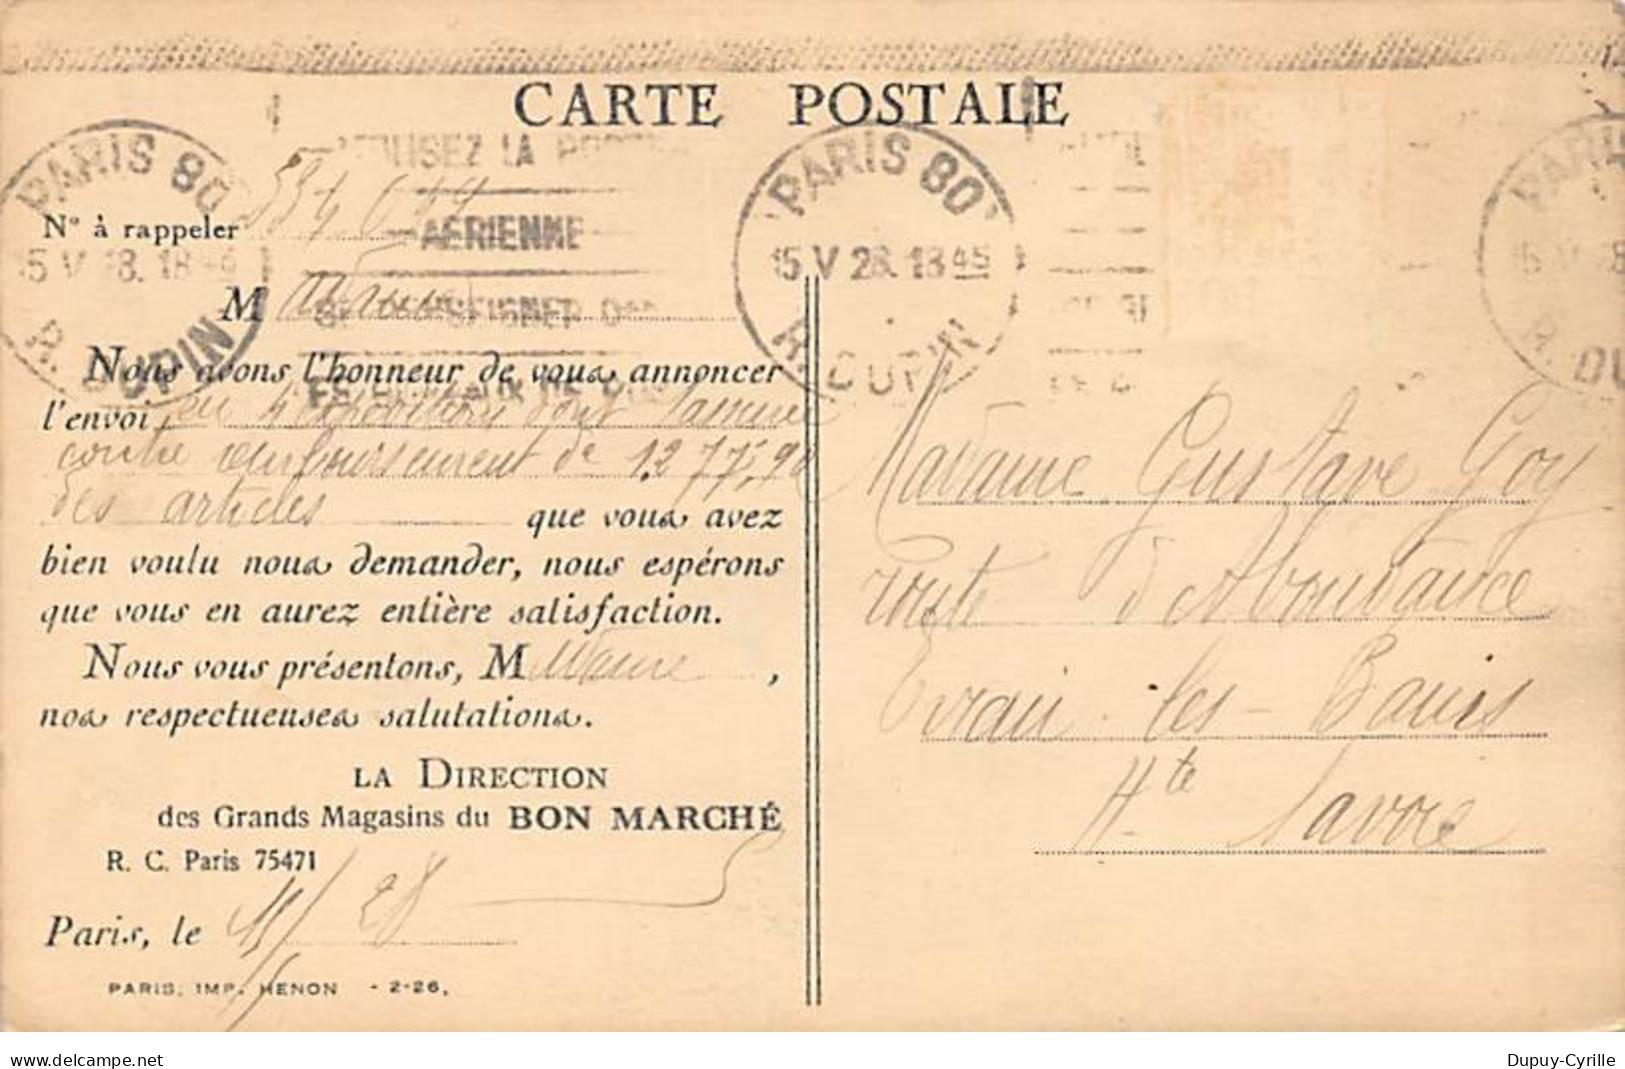 CARTE POSTALE
PARIS 80
15 V 28. 18 45
R. DUPIN
UTILISEZ LA POSTE
AÉRIENNE
SE RENSEIGNER DANS
LES BUREAUX DE POSTE
N° à rappeler 534 649
M Madame
Nous avons l'honneur de vous annoncer
l'envoi en
contre remboursement de 1.277,90
des articles que vous avez
bien voulu nous demander, nous espérons
que vous en aurez entière satisfaction.
Nous vous présentons, M adame ,
nos respectueuses salutations.
LA DIRECTION
des Grands Magasins du BON MARCHÉ
R. C. Paris 75471
Paris, le 15/5 28
PARIS, IMP. HENON - 2-26.
PARIS 80
15 V 28. 18 45
R. DUPIN
Madame Gustave Goy
route d'Abondance
Evian les-Bains
Hte Savoie
PARIS
R. DU
www.delcampe.net
Dupuy-Cyrille